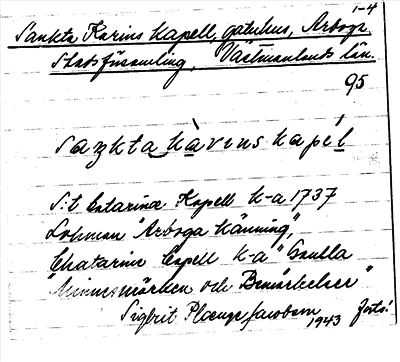 1-4
Sankta Karins kapell, gatuhus, Arboga
Stadsförsamling, Västmanlands län.
95
Sankta kàrins kapél
S:t Catarinæ Kapell k-a 1737
Lohman "Arboga Känning",
Chatarine Capell k-a "Gamla
"Minnesmärken och Benärkelser"
Sigbrit Plænge Jacobson
1943 forts!